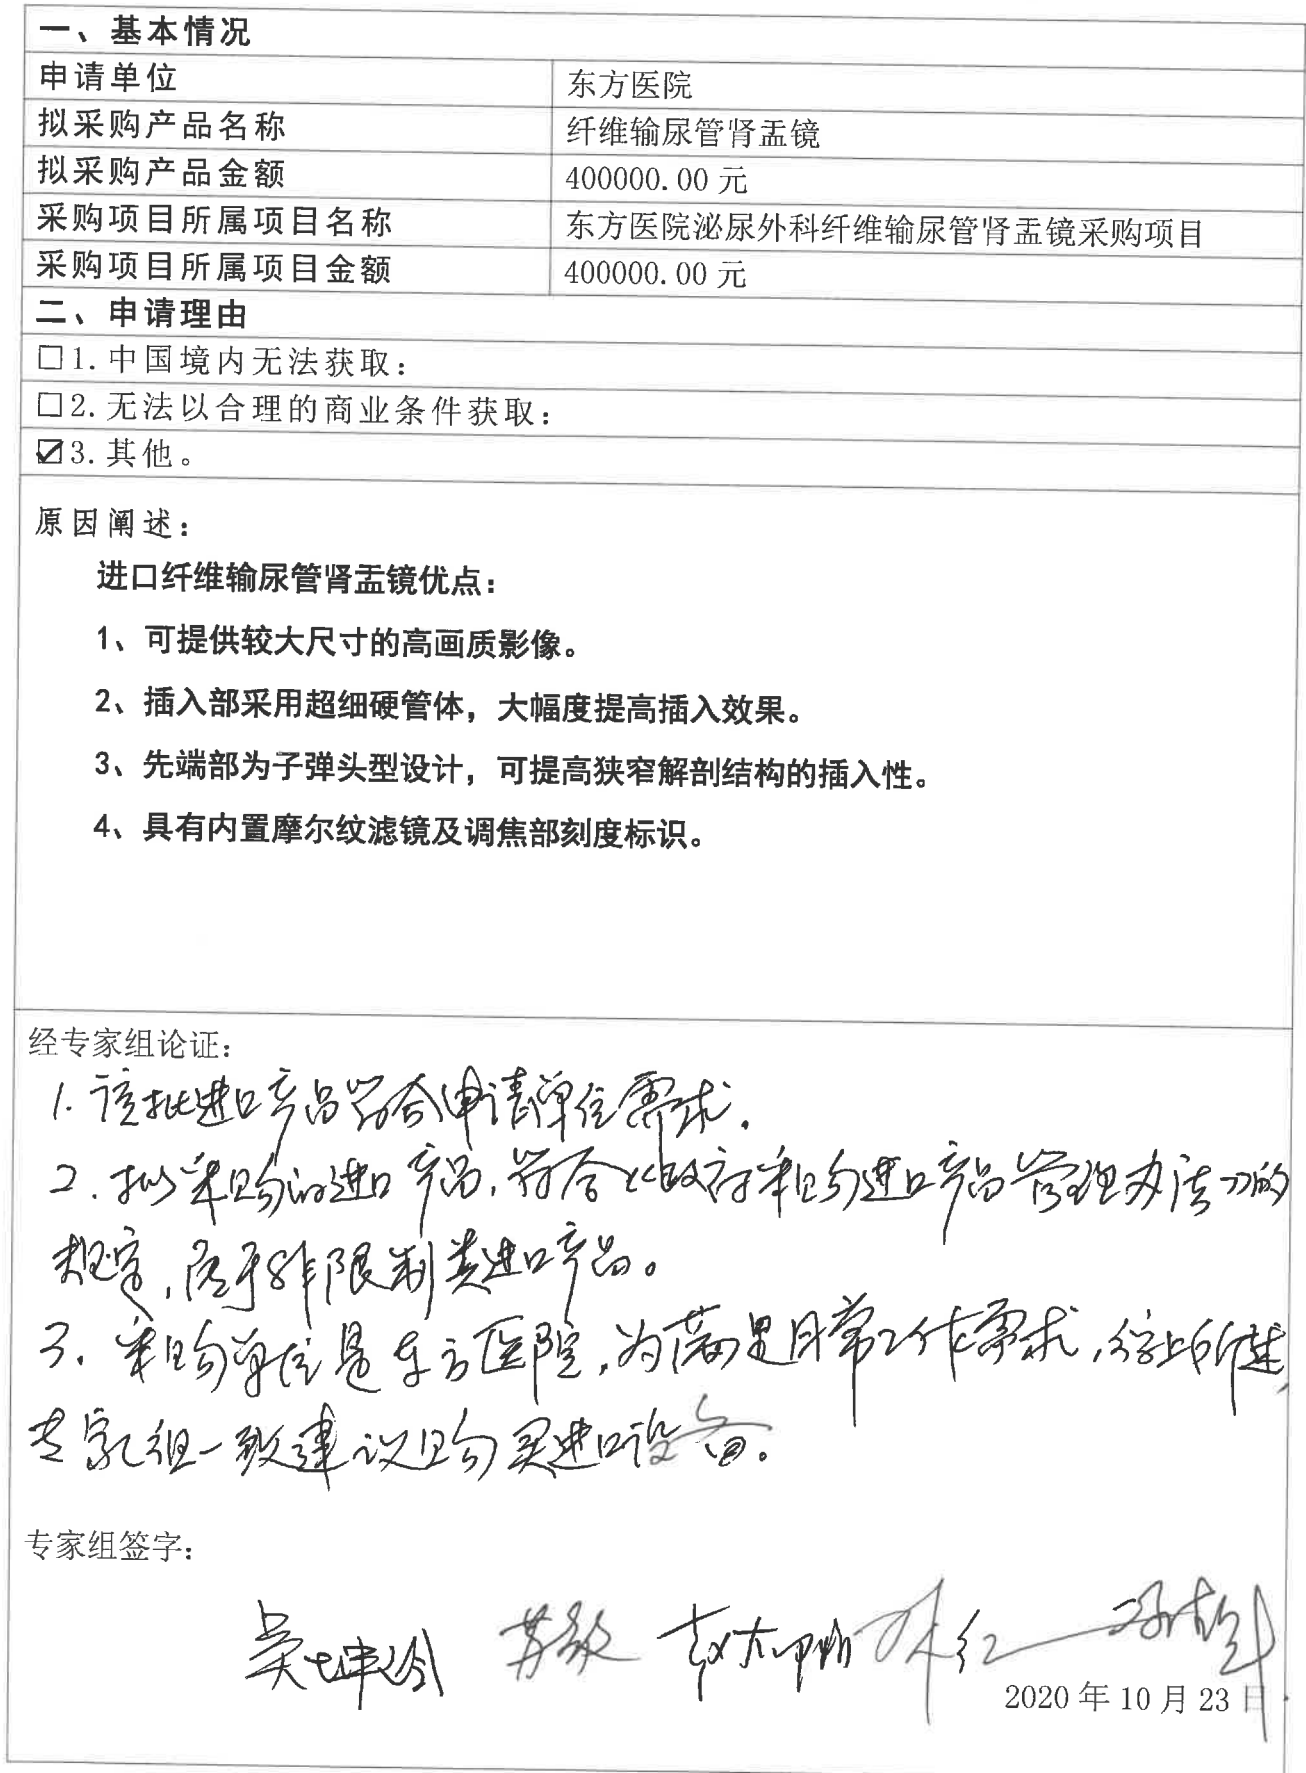 一、基本情况
申请单位 东方医院
拟采购产品名称 纤维输尿管肾盂镜
拟采购产品金额 400000.00 元
采购项目所属项目名称 东方医院泌尿外科纤维输尿管肾盂镜采购项目
采购项目所属项目金额 400000.00 元
二、申请理由
□1.中国境内无法获取：
□2.无法以合理的商业条件获取：
☑3.其他。
原因阐述：
进口纤维输尿管肾盂镜优点：
1、可提供较大尺寸的高画质影像。
2、插入部采用超细硬管体，大幅度提高插入效果。
3、先端部为子弹头型设计，可提高狭窄解剖结构的插入性。
4、具有内置摩尔纹滤镜及调焦部刻度标识。
经专家组论证：
1.该批进口产品符合申请单位需求。
2.拟采购的进口产品，符合《政府采购进口产品管理办法》的
规定，属于非限制类进口产品。
3.采购单位是东方医院，为满足日常工作需求，综上所述，
专家组一致建议购买进口设备。
专家组签字：
2020 年 10 月 23 日